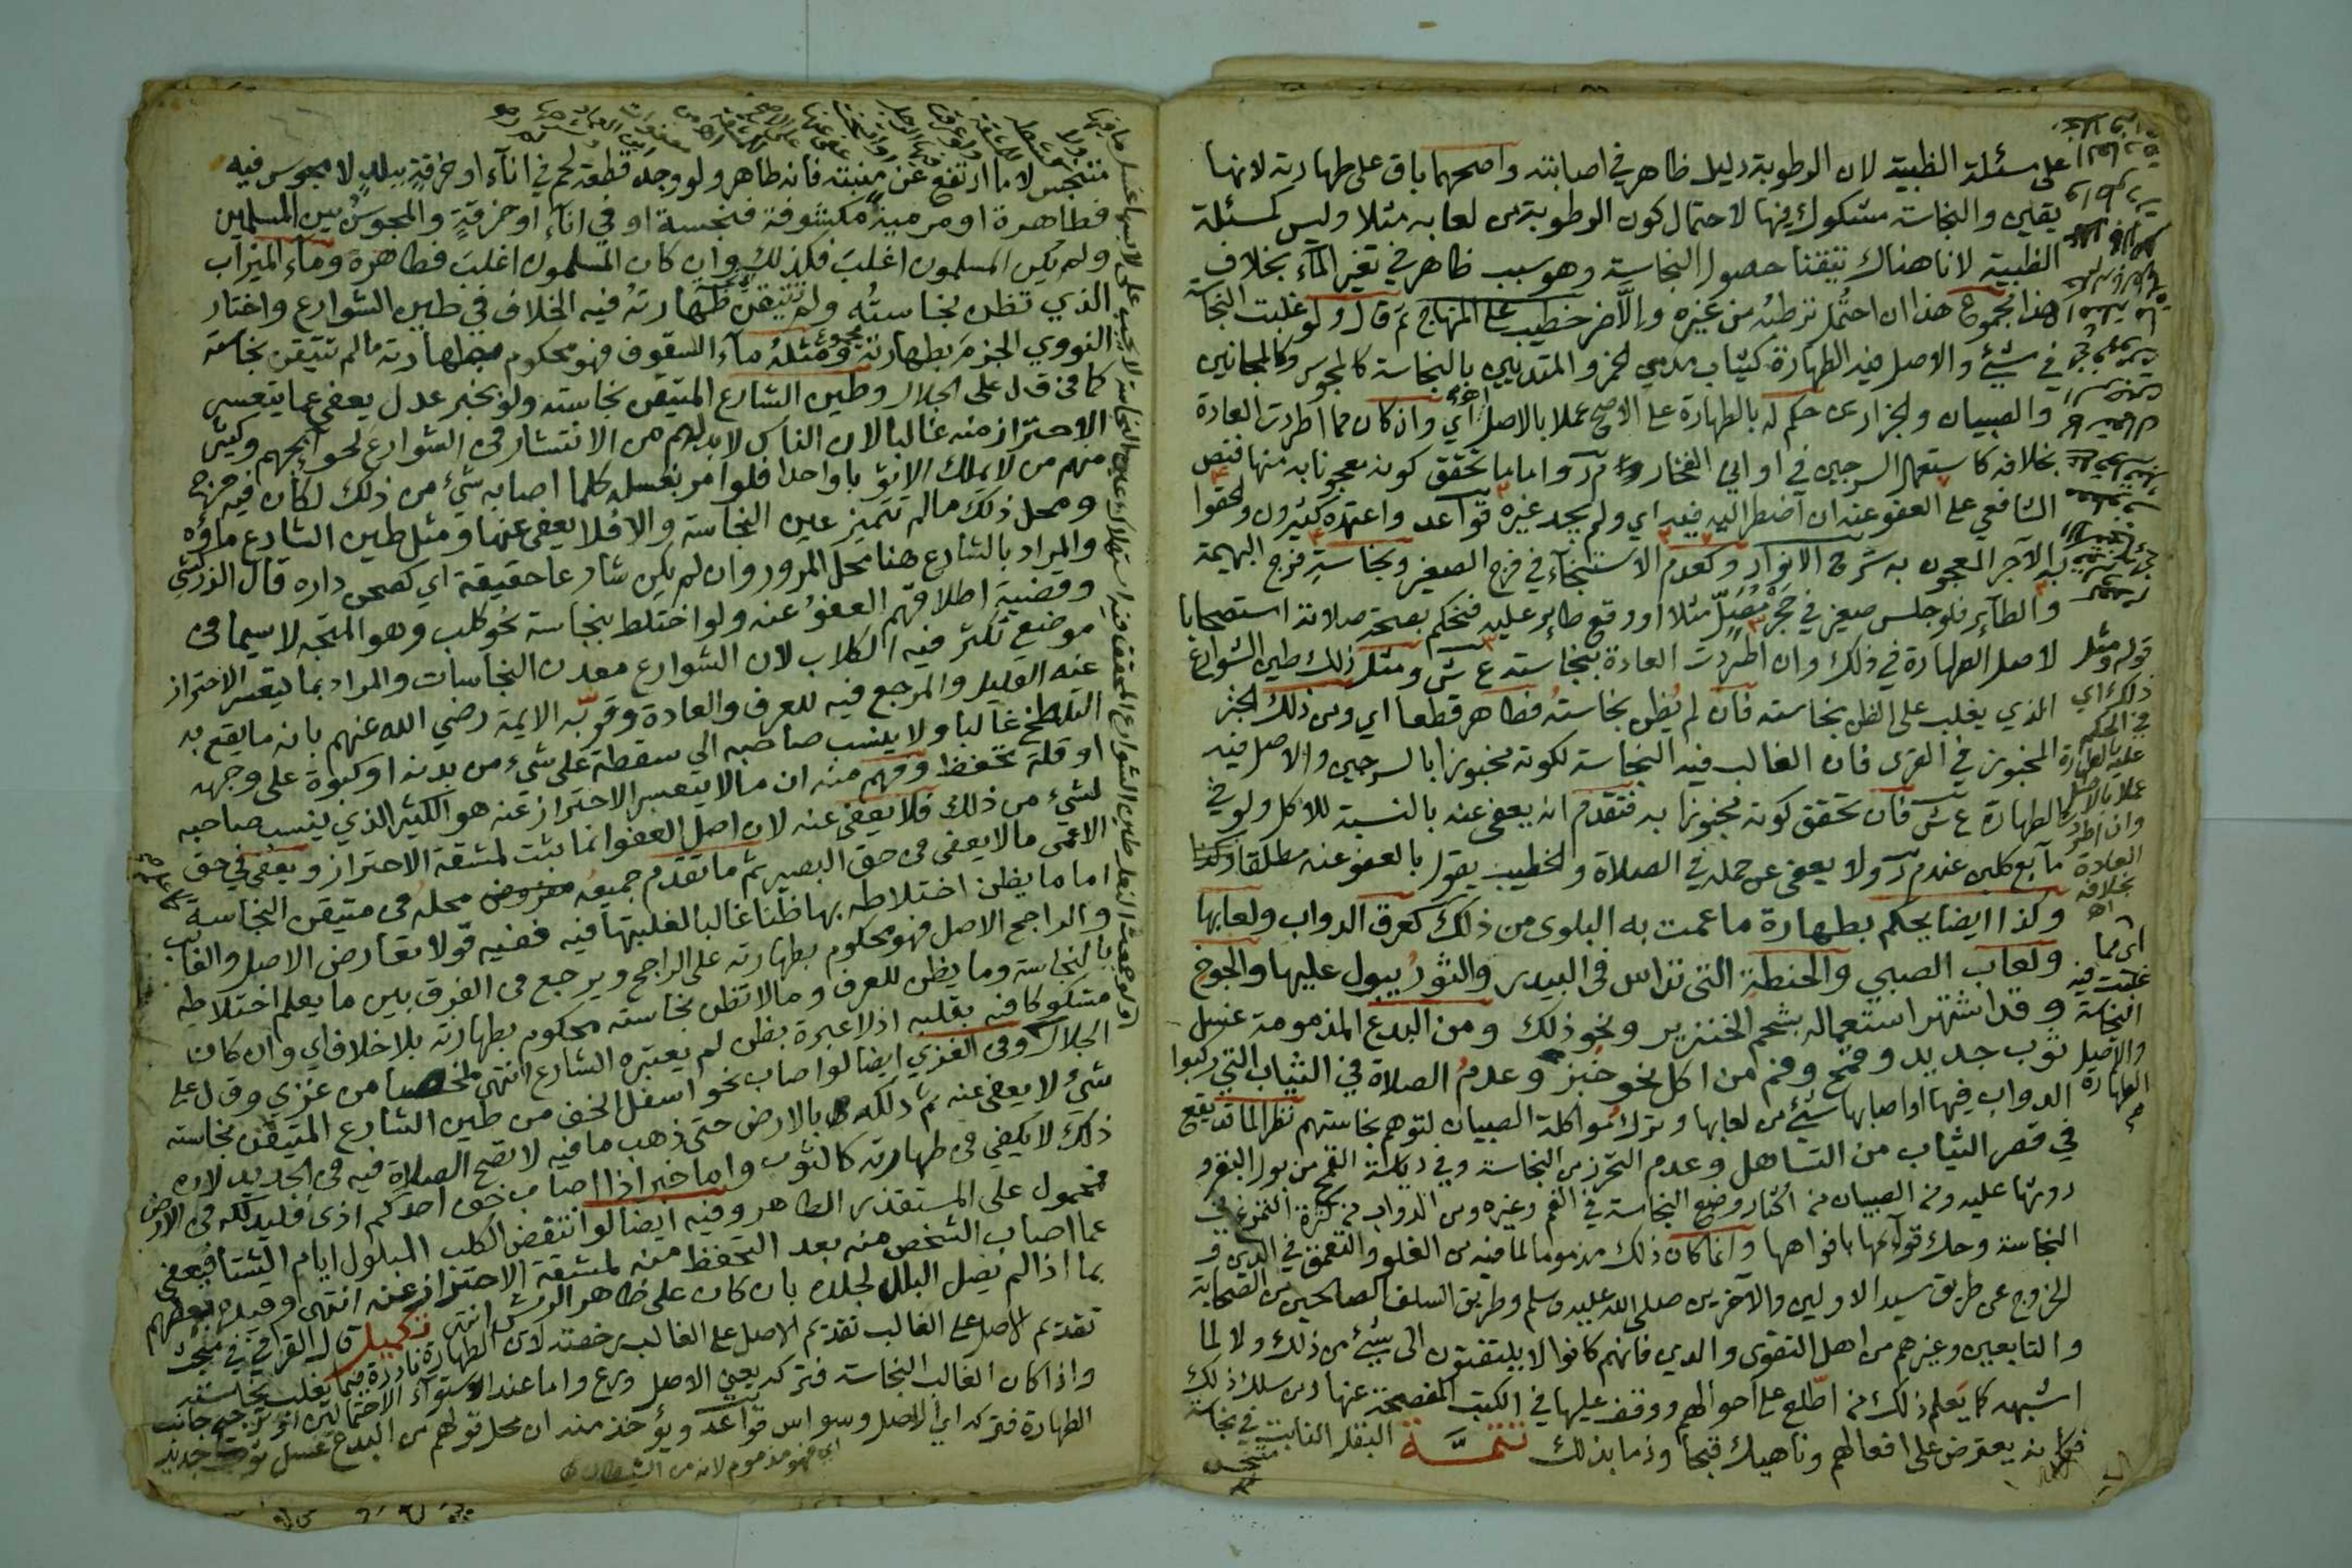 على مسئلة الظبية لان الرطوبة دليل ظاهر في اصابته واصحهما باق على طهارته لانها
يقين والنجاسة مشكوك فيها لاحتمال كون الرطوبة من لعابه مثلا وليس كمسئلة
الظبية لانا هناك تيقنا حصول النجاسة وهو سبب ظاهر في تغير الماء بخلاف
هذا مجموع هذا ان احتمل ترطبه من غيره والا ضر خطيب على المنهاج ثم قال ولو غلبت النجاسة
في شيئ والاصل فيه الطهارة كثياب مدمني الخمر والمتدينين بالنجاسة كالمجوس وكالمجانين
والصبيان والجزارين حكم له بالطهارة على الاصح عملا بالاصل اي وان كان مما اطردت العادة
بخلافه كاستعمال السرجين في اواني الفخار م ر واما ما تحقق كونه معجونا به منها فنص
الشافعي على العفو عنه ان اضطر اليه فيه اي ولم يجد غيره قواعد واعتمده كثيرون والحقوا
به الآجر المعجون به شرح الانوار وكعدم الاستنجاء في فرج الصغير ونجاسة فرج البهيمة
والطائر فلو جلس صغير في حجر مصل مثلا او وقع طائر عليه فنحكم بصحة صلاته استصحابا
لاصل الطهارة في ذلك وان اطردت العادة بنجاسته ع ش ومثل ذلك طين الشوارع
الذي يغلب على الظن نجاسته فان لم يظن نجاسته فطاهر قطعا اي ومن ذلك الخبز
المخبوز في القرى فان الغالب فيه النجاسة لكونه مخبوزا بالسرجين والاصل فيه
الطهارة ع ش فان تحقق كونه مخبوزا به فتقدم انه يعفى عنه بالنسبة للاكل ولو في
مايع لكن عند م ر ولا يعفى عن حمله في الصلاة والخطيب يقول بالعفو عنه مطلقا
وكذا ايضا يحكم بطهارة ما عمت به البلوى من ذلك كعرق الدواب ولعابها
ولعاب الصبي والحنطة التي تداس في البيدر والثور يبول عليها والجوخ
وقد اشتهر استعماله بشحم الخنزير ونحو ذلك ومن البدع المذمومة غسل
ثوب جديد وقمح وفم من اكل نحو خبز وعدم الصلاة في الثياب التي ركبوا
الدواب فيها او اصابها شيئ من لعابها وترك مواكلة الصبيان لتوهم نجاستهم نظرا لما قد يقع
في قصر الثياب من التساهل وعدم التحرز من النجاسة وفي دياسة القمح من بول البقر و
روثها عليه ومن الصبيان من اكثار وضع النجاسة في الفم وغيره ومن الدواب من كثرة التمرغ في
النجاسة وحك قوائمها بافواهها وانما كان ذلك مذموما لما فيه من الغلو والتعمق في الدين و
الخروج عن طريق سيد الاولين والآخرين صلى الله عليه وسلم وطريق السلف الصالحين من الصحابة
والتابعين وغيرهم من اهل التقوى والدين فانهم كانوا لا يلتفتون الى شيئ من ذلك ولا لما
اشبهه كما يعلم ذلك من اطلع على احوالهم ووقف عليها في الكتب المفصحة عنها ومن سلك ذلك
فكانه يعترض على افعالهم وناهيك قبحا وذما بذلك تتمة البقل النابت في نجاسة
متنجس
قوله ومثل
ذلك اي
في الحكم
عليه بالطهارة
عملا بالاصل
وان اطردت
العادة
بخلافه
اه
اي مما
غلبت فيه
النجاسة
والاصل
الطهارة
متنجس لا ما ارتفع عن منبته فانه طاهر ولو وجد قطعة لحم في اناء او خرقة ببلد لا مجوس فيه
فطاهرة او مرمية مكشوفة فنجسة او في اناء او خرقة والمجوس بين المسلمين
ولم يكن المسلمون اغلب فكذلك وان كان المسلمون اغلب فطاهرة وماء الميزاب
الذي تظن نجاسته ولم تتيقن طهارته فيه الخلاف في طين الشوارع واختار
النووي الجزم بطهارته مجموع ومثله ماء السقوف فهو محكوم بطهارته ما لم تتيقن نجاسته
كما في ق ل على الجلال وطين الشارع المتيقن نجاسته ولو بخبر عدل يعفى عما يتعسر
الاحتراز منه غالبا لان الناس لا بد لهم من الانتشار في الشوارع لحوائجهم وكثير
منهم من لا يملك الا ثوبا واحدا فلو امر بغسله كلما اصابه شيء من ذلك لكان فيه حرج
ومحل ذلك ما لم تتميز عين النجاسة والا فلا يعفى عنها ومثل طين الشارع ماؤه
والمراد بالشارع هنا محل المرور وان لم يكن شارعا حقيقة اي كصحن داره قال الزركشي
وقضية اطلاقهم العفو عنه ولو اختلط بنجاسة نحو كلب وهو المتجه لا سيما في
موضع تكثر فيه الكلاب لان الشوارع معدن النجاسات والمراد بما يتعسر الاحتراز
عنه القليل والمرجع فيه للعرف والعادة وقربه الايمة رضي الله عنهم بانه ما يقع به
التلطخ غالبا ولا ينسب صاحبه الى سقطة على شيء من بدنه او كبوة على وجهه
او قلة تحفظ وفهم منه ان ما لا يتعسر الاحتراز عنه هو الكثير الذي ينسب صاحبه
لشيء من ذلك فلا يعفى عنه لان اصل العفو انما يثبت لمشقة الاحتراز ويعفى في حق
الاعمى ما لا يعفى في حق البصير ثم ما تقدم جميعه مفروض محله في متيقن النجاسة
اما ما يظن اختلاطه بها ظنا غالبا لغلبتها فيه ففيه قولا تعارض الاصل والغالب
والراجح الاصل فهو محكوم بطهارته على الراجح ويرجع في الفرق بين ما يعلم اختلاطه
بالنجاسة وما يظن للعرف وما لا تظن نجاسته محكوم بطهارته بلا خلاف اي وان كان
مشكوكا فيه بقلبه اذ لا عبرة بظن لم يعتبره الشارع انتهى ملخصا من عزيزي وق ل على
الجلال وفي العزيزي ايضا لو اصاب نحو اسفل الخف من طين الشارع المتيقن نجاسته
شيء لا يعفى عنه ثم دلكه بالارض حتى ذهب ما فيه لا تصح الصلاة فيه في الجديد لان
ذلك لا يكفي في طهارته كالثوب واما خبر اذا اصاب خف احدكم اذى فليدلكه في الارض
فمحمول على المستقذر الطاهر وفيه ايضا لو انتفض الكلب المبلول ايام الشتا فيعفى
عما اصاب الشخص منه بعد التحفظ منه لمشقة الاحتراز عنه انتهى وقيده بعضهم
بما اذا لم يصل البلل لجلده بان كان على ظاهر الوبر انتهى تكميل قال القرافي في منجد
تقديم الاصل على الغالب تقديم الاصل على الغالب رخصة لان الطهارة نادرة فيما يغلب نجاسته
واذا كان الغالب النجاسة فتركه يعني الاصل ورع واما عند استواء الاحتمالين او ترجيح جانب
الطهارة فتركه اي الاصل وسواس قواعد ويؤخذ منه ان محل قولهم من البدع غسل ثوب جديد
اي فهو مذموم لانه من الشيطان